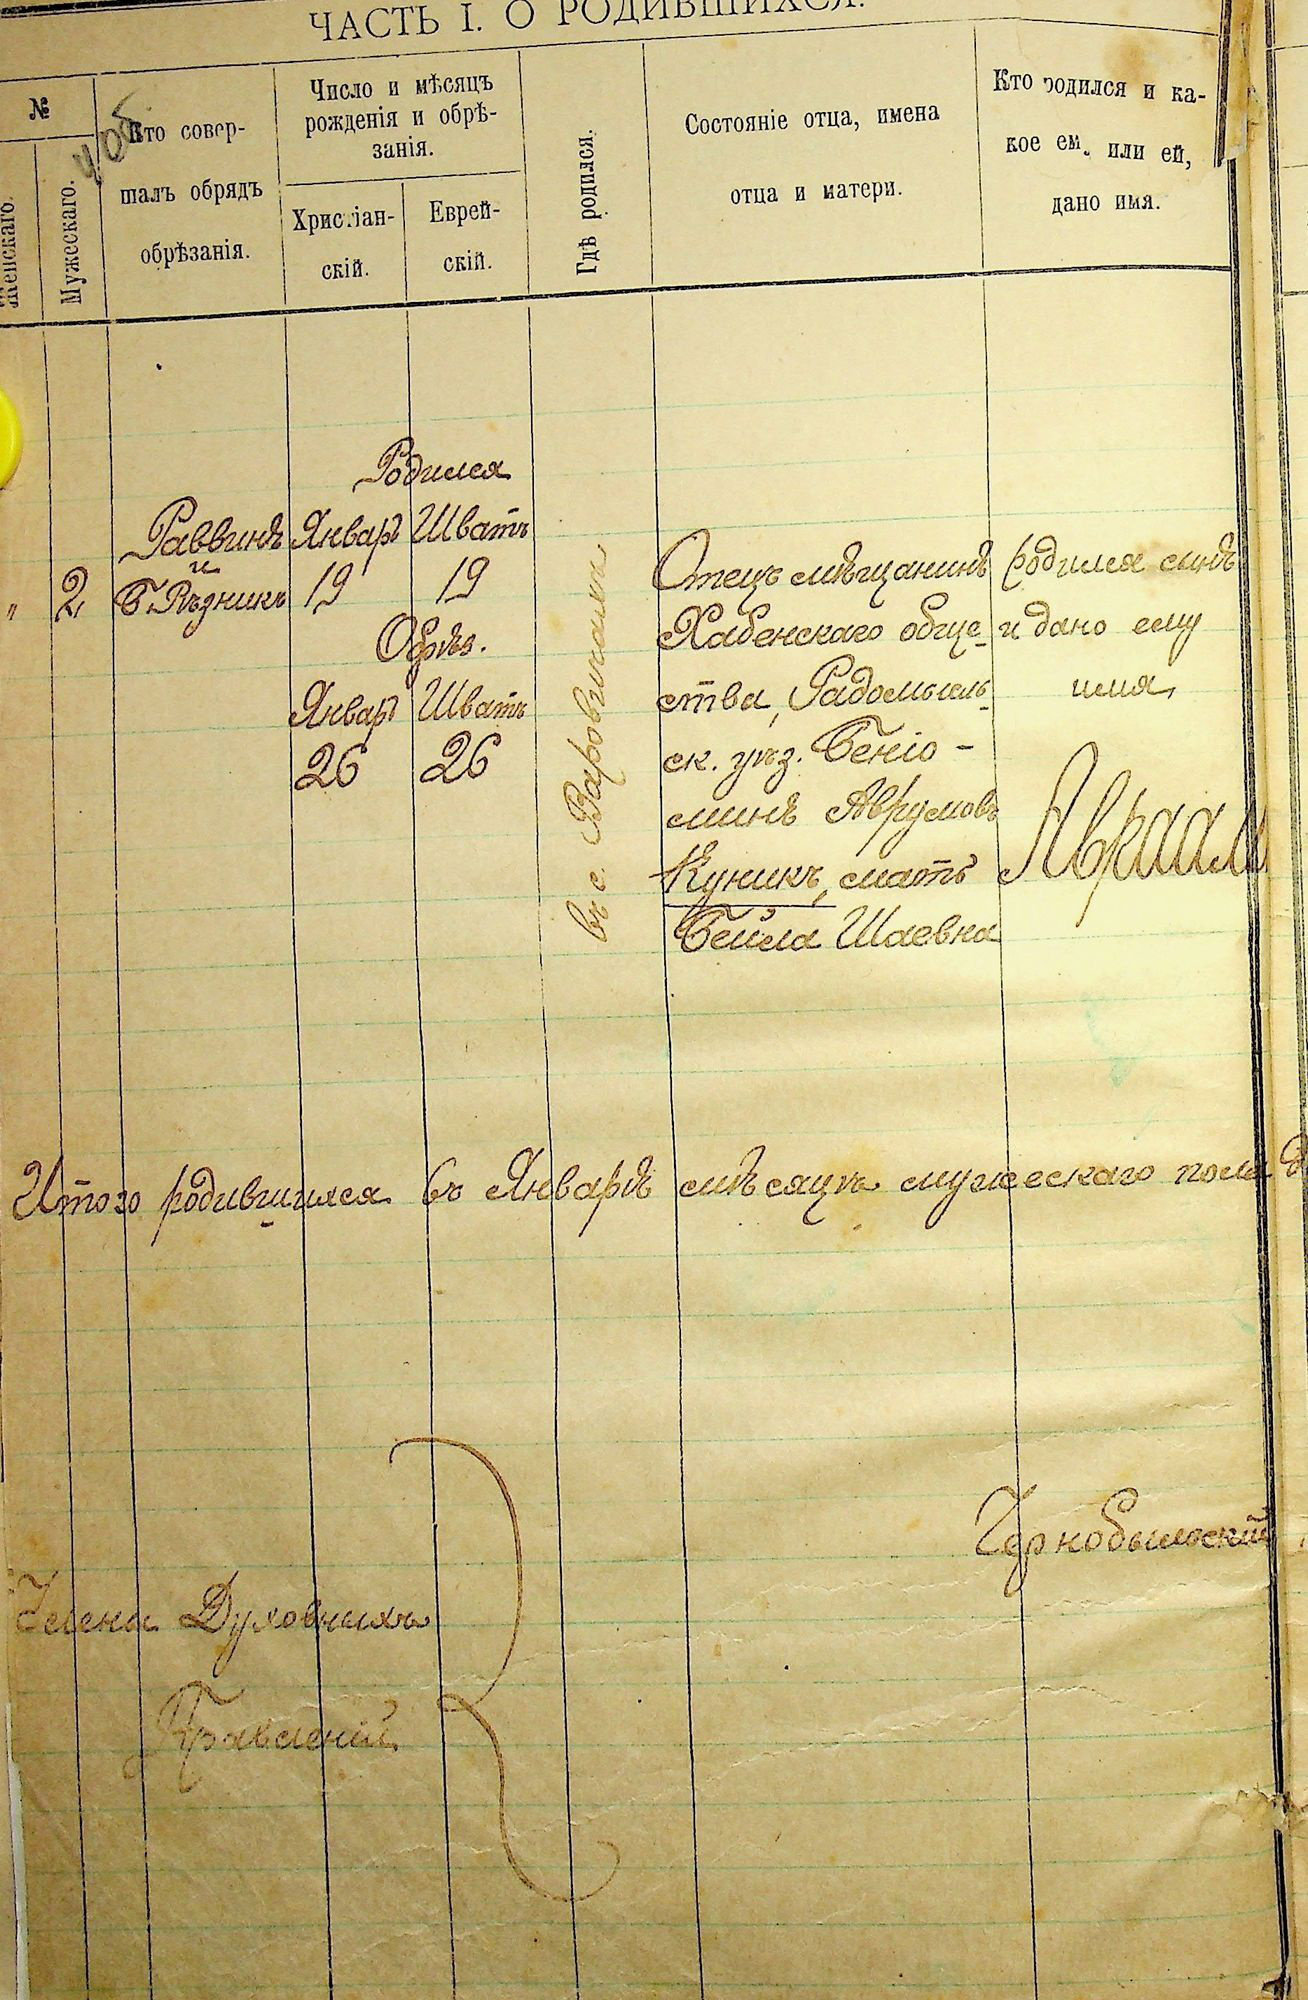 ЧАСТЬ I. О РОДИВШИХСЯ.
№
Женскаго.
Мужескаго.
Кто совер-
шалъ обрядъ
обрѣзанія.
Число и мѣсяцъ
рожденія и обрѣ-
занія.
Христіан-
скій.
Еврей-
скій.
Гдѣ родился.
Состояніе отца, имена
отца и матери.
Кто родился и ка-
кое ему или ей,
дано имя.
Родился
Раввинъ Январ Шватъ
и
" 2 Б. Рѣзникъ 19 19
Обрѣз.
Январ Шватъ
26 26
въ с.
Отецъ мѣщанинъ
Хабенскаго обще-
ства, Радомысль-
ск. уѣз. Беніо-
минъ Аврумовъ
Куникъ, мать
Бейла Шаевна
родился сынъ
и дано ему
имя
Авраам
Итого родившихся въ Январѣ мѣсяцѣ мужескаго пола
Чернобыльскій
Члены Духовныхъ
Правленій